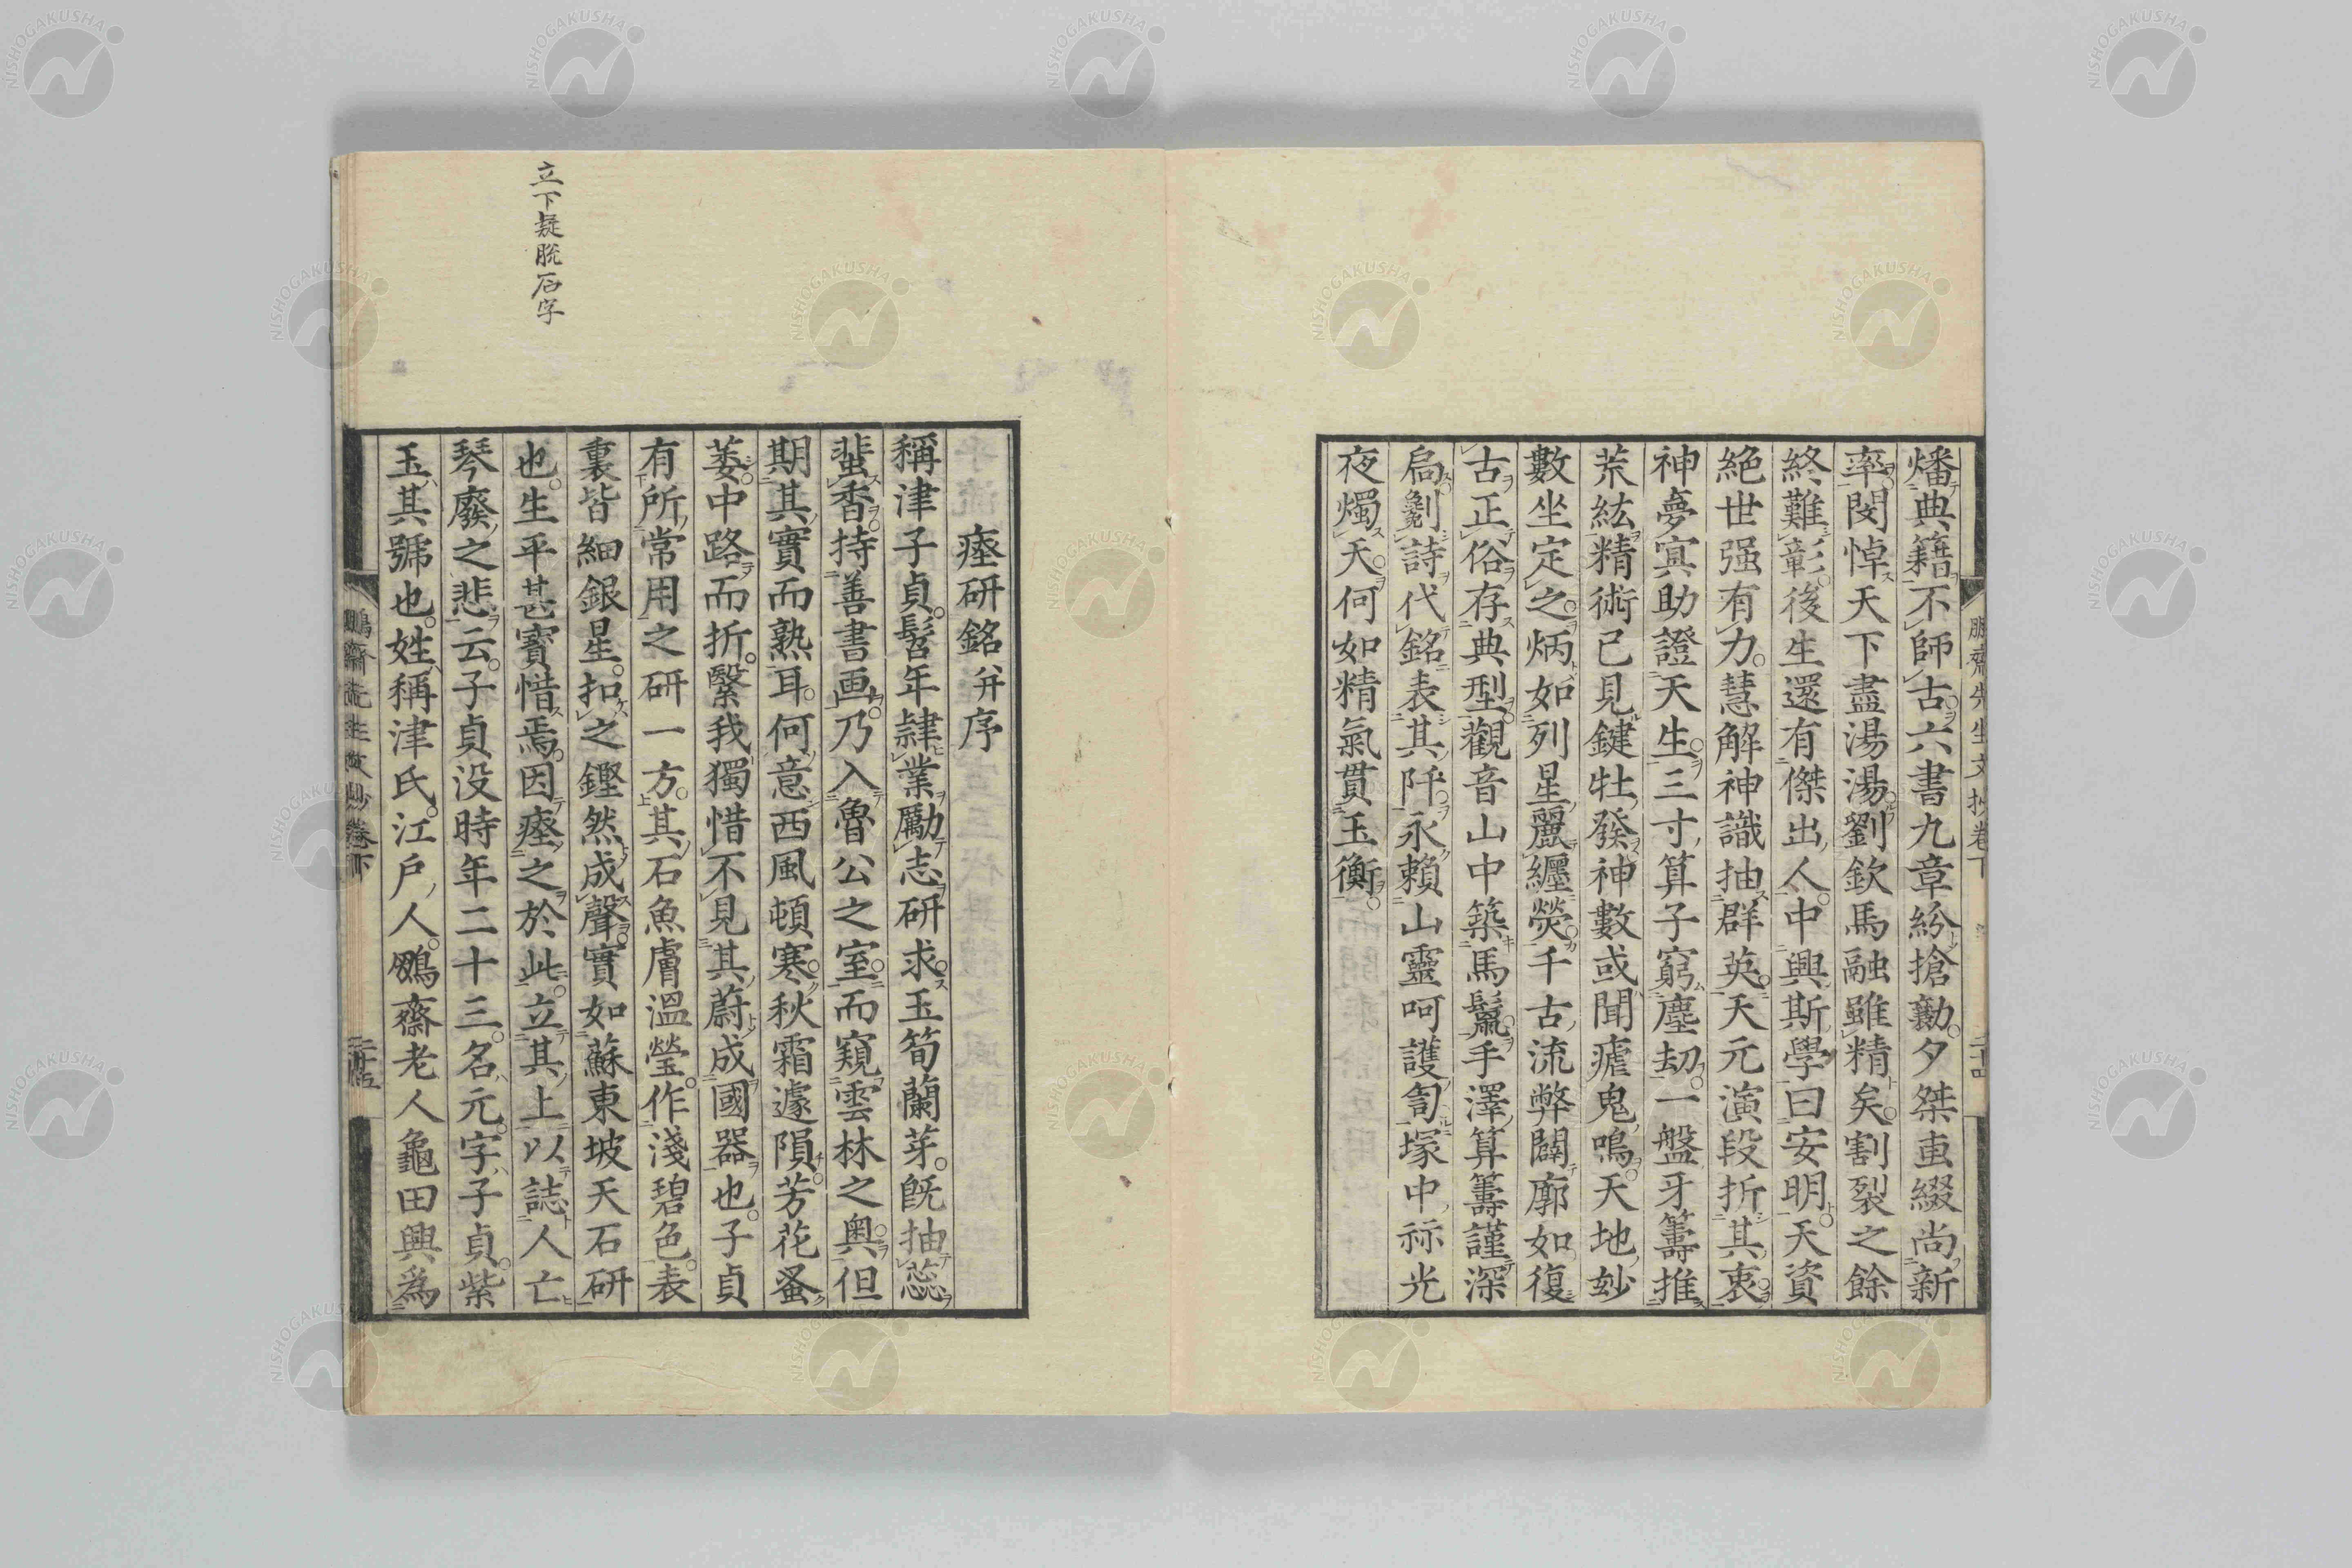 鵬齋先生文抄卷下
二十四
燔典籍不師古六書九章紛搶勷夕桀重綴尚新
率閔悼天下盡湯湯劉欽馬融雖精矣割裂之餘
終難彰後生還有傑出人中興斯學曰安明天資
絶世强有力慧解神識抽群英天元演段折其衷
神夢寘助證天生三寸算子窮塵劫一盤牙籌推
荒紘精術已見鍵牡發神數或聞瘧鬼鳴天地玅
數坐定之炳如列星麗纒熒千古流弊闢廓如復
古正俗存典型觀音山中築馬鬣手澤算籌謹深
扃劖詩代銘表其阡永賴山靈呵護訇塚中祘光
夜燭天何如精氣貫玉衡
瘞研銘并序
稱津子貞髫年肄業勵志研求玉筍蘭芽既抽蕊
蜚香持善書画乃入魯公之室而窺雲林之奥但
期其實而熟耳何意西風頓寒秋霜遽隕芳花蚤
萎中路而折繄我獨惜不見其蔚成國器也子貞
有所常用之研一方其石魚膚溫瑩作淺碧色表
裏皆細銀星扣之鏗然成聲實如蘇東坡天石研
也生平甚寶惜焉因瘞之於此立其上以誌人亡
琴廢之悲云子貞没時年二十三名元字子貞紫
玉其號也姓稱津氏江戶人鵬齋老人龜田興為
立下疑脱石字
鵬齋先生文抄卷下
二十五
NISHOGAKUSHA